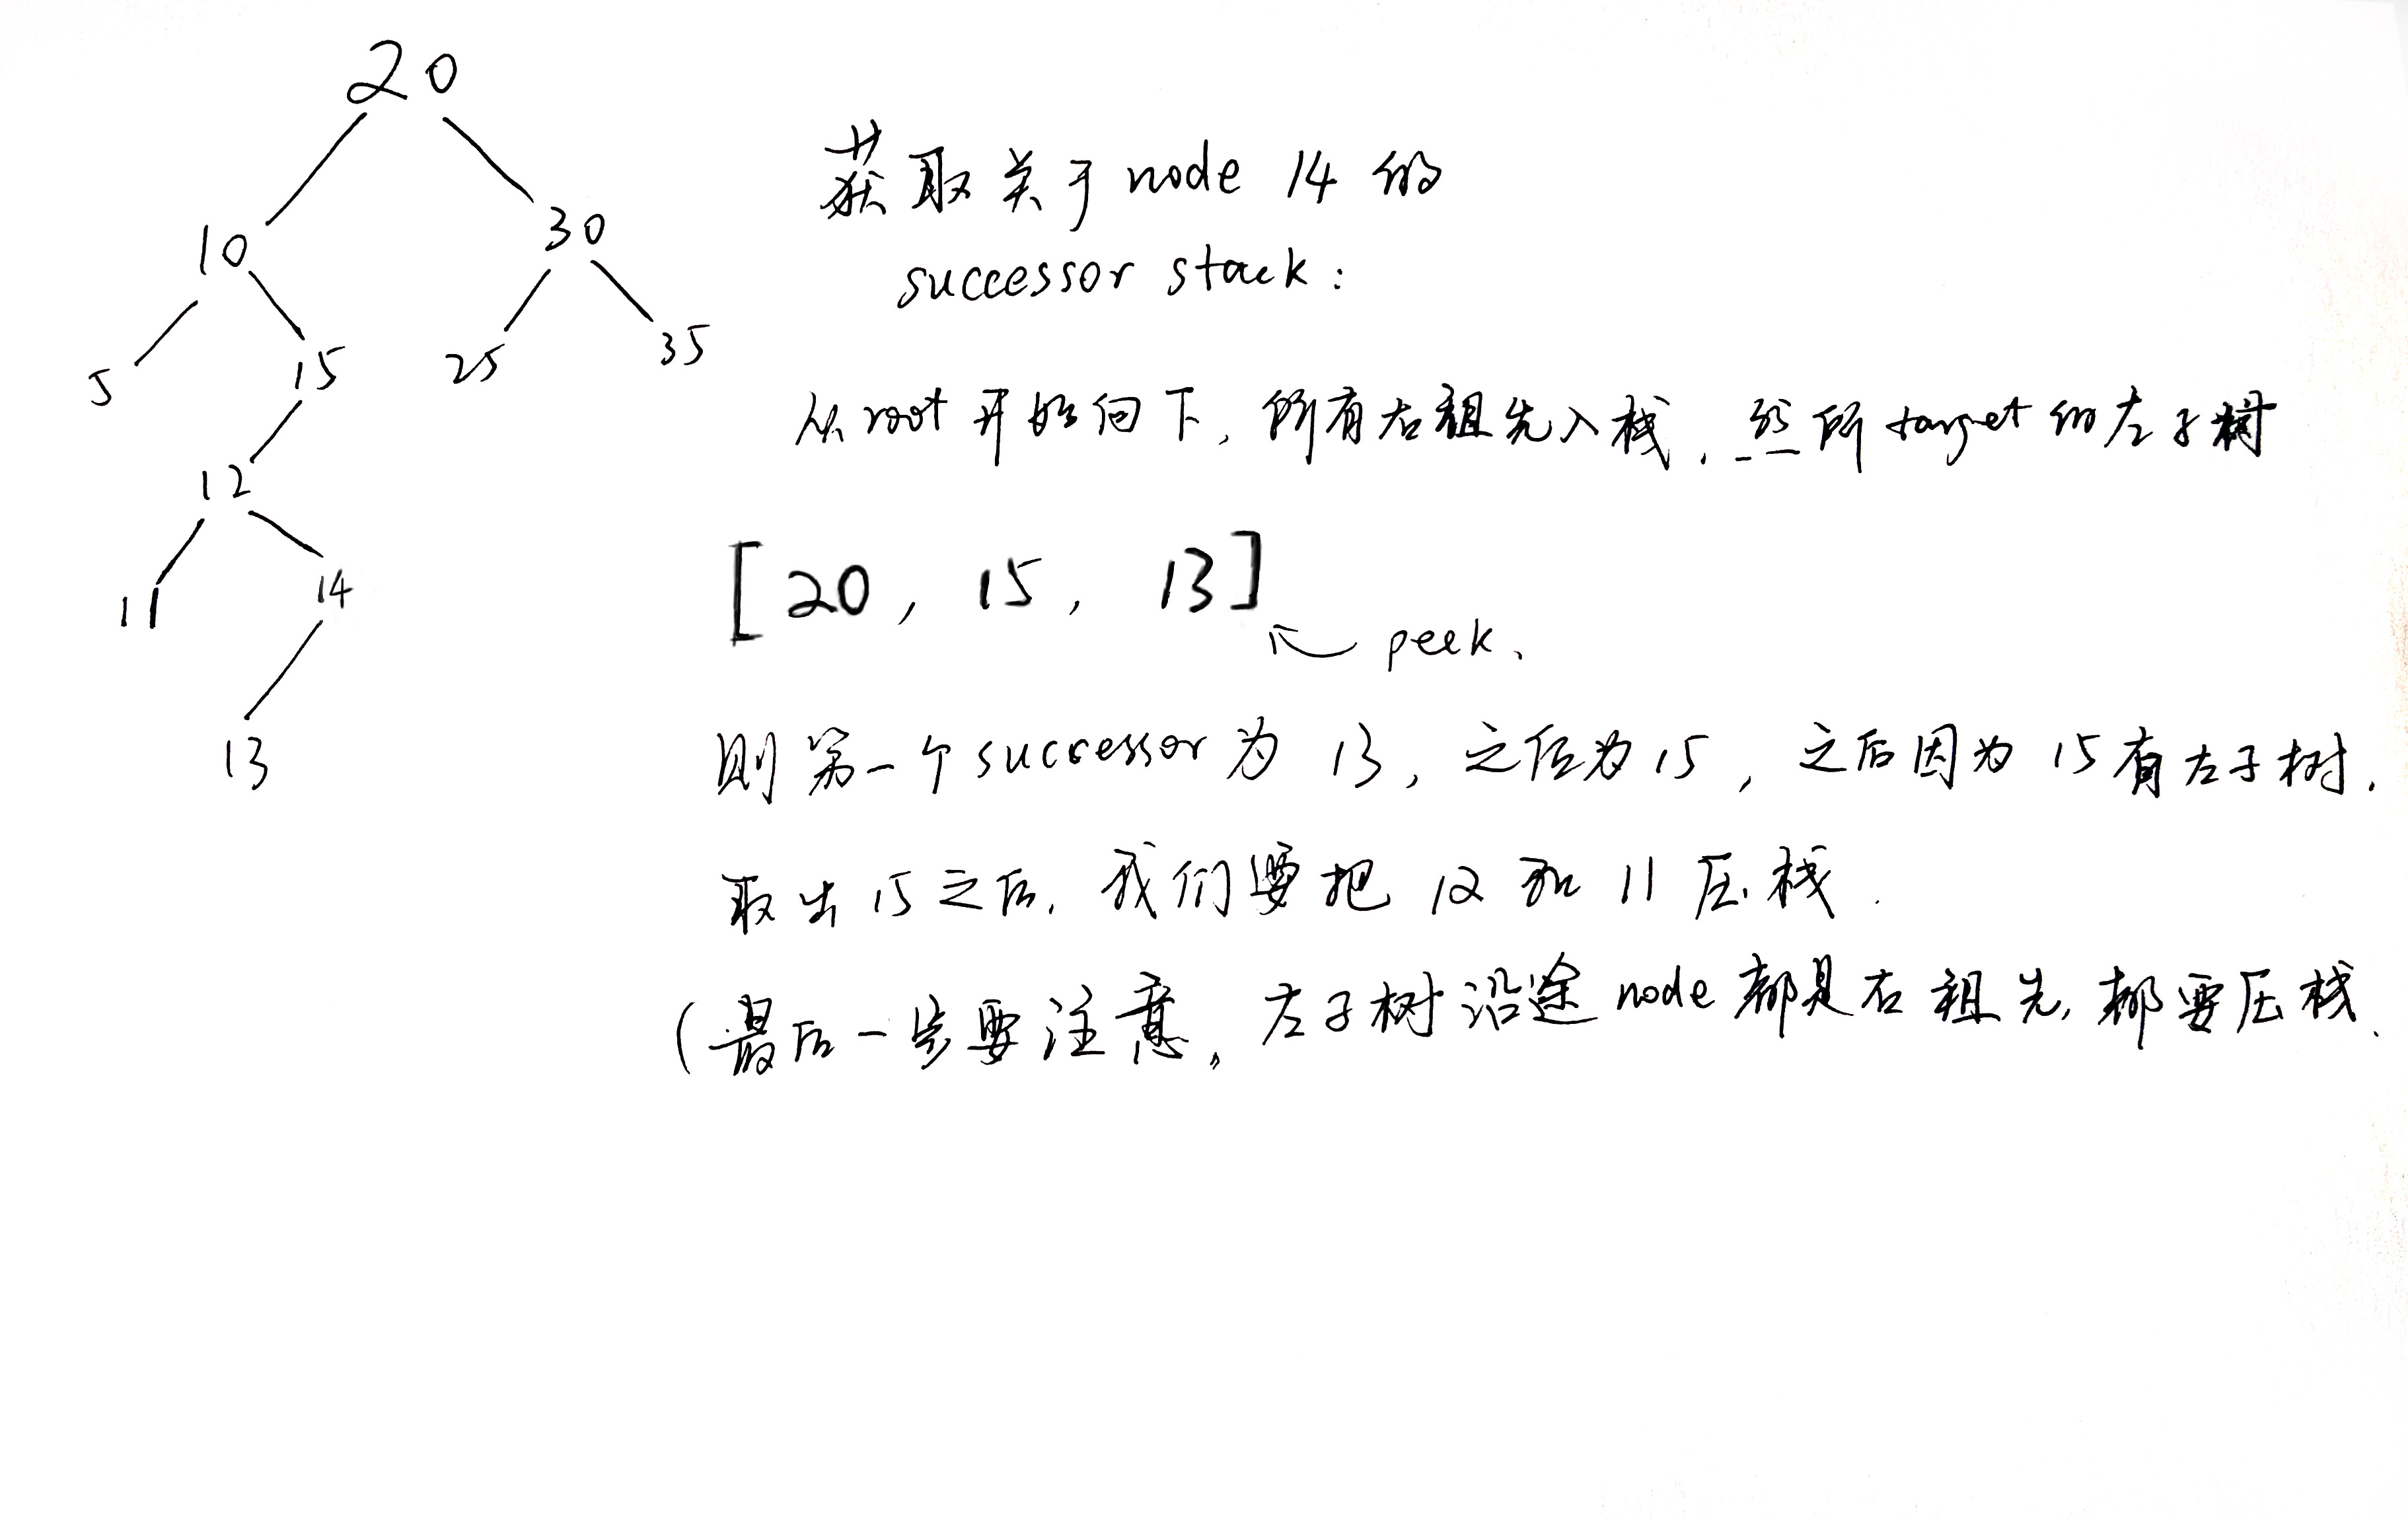 20
10 30
5 15 25 35
12
11 14
13
获取关于 node 14 的
successor stack:
从 root 开始向下, 所有右祖先入栈. target 的左子树
[20, 15, 13]
peek.
则第一个 successor 为 13, 之后为 15, 之后因为 15 有左子树.
取出 15 之后, 我们要把 12 和 11 压栈.
(最后一步要注意, 左子树沿途 node 都是右祖先, 都要压栈.